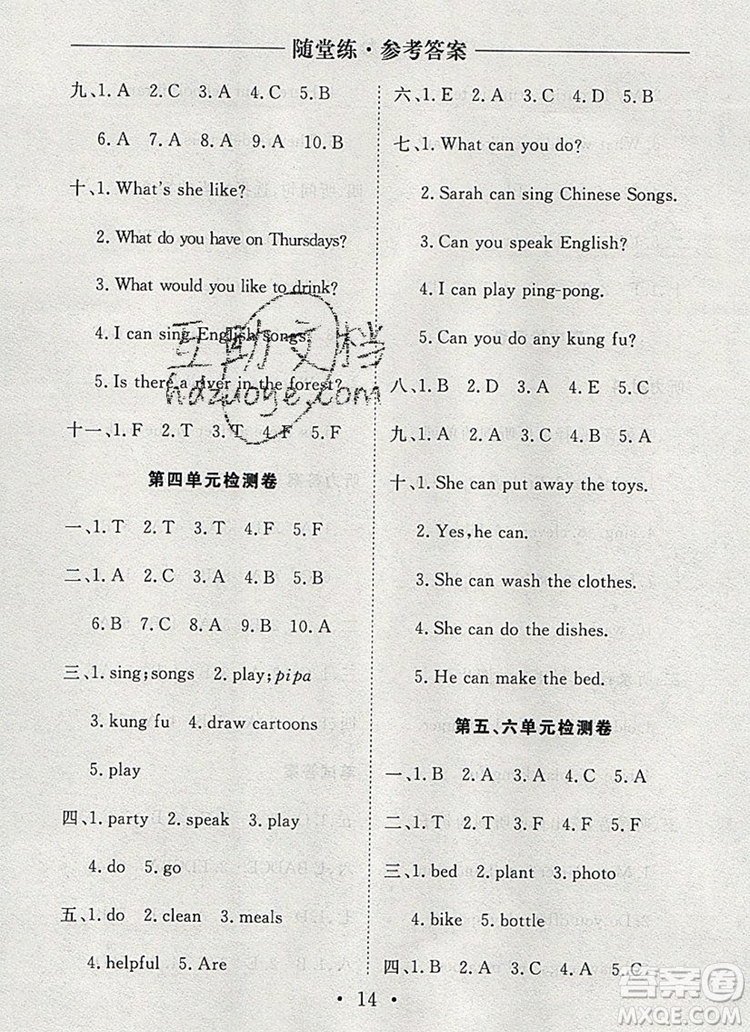 随堂练·参考答案
九、1. A 2. C 3. A 4. C 5. B
6. A 7. A 8. A 9. A 10. B
十、1. What's she like?
2. What do you have on Thursdays?
3. What would you like to drink?
4. I can sing English songs.
5. Is there a river in the forest?
十一、1. F 2. T 3. T 4. F 5. F
第四单元检测卷
一、1. T 2. T 3. T 4. F 5. F
二、1. A 2. B 3. A 4. B 5. B
6. B 7. C 8. A 9. B 10. A
三、1. sing;songs 2. play;pipa
3. kung fu 4. draw cartoons
5. play
四、1. party 2. speak 3. play
4. do 5. go
五、1. do 2. clean 3. meals
4. helpful 5. Are
六、1. E 2. A 3. C 4. D 5. B
七、1. What can you do?
2. Sarah can sing Chinese Songs.
3. Can you speak English?
4. I can play ping-pong.
5. Can you do any kung fu?
八、1. B 2. D 3. A 4. E 5. C
九、1. C 2. A 3. B 4. A 5. B
十、1. She can put away the toys.
2. Yes,he can.
3. She can wash the clothes.
4. She can do the dishes.
5. He can make the bed.
第五、六单元检测卷
一、1. B 2. A 3. A 4. C 5. A
二、1. T 2. F 3. T 4. F 5. F
三、1. bed 2. plant 3. photo
4. bike 5. bottle
四、1. B 2. A 3. B 4. A 5. C
• 14 •
互助文档
hdzuoye.com
答案圈
MXQE.COM